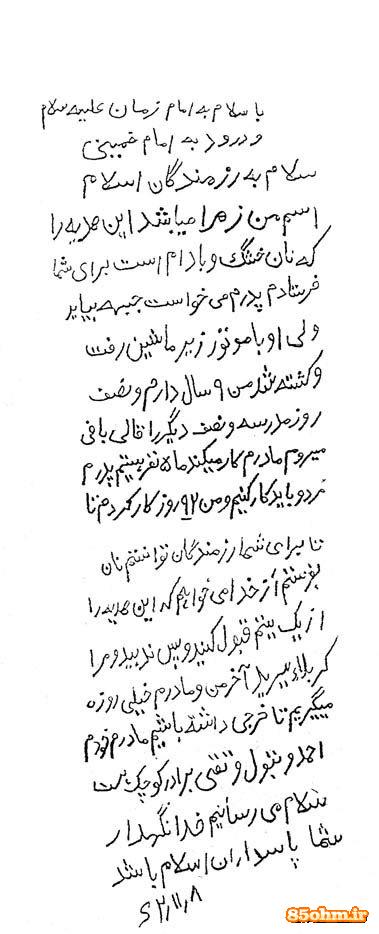 با سلام به امام زمان علیه سلام
و درود به امام خمینی
سلام به رزمندگان اسلام
اسم من زهرا میباشد این هدیه را
که نان خشک و بادام است برای شما
فرستادم پدرم می خواست جبهه بیاید
ولی او با موتور زیر ماشین رفت
و کشته شد من ۹ سال دارم و نصف
روز مدرسه و نصف دیگر را قالی بافی
میروم مادرم کار میکند ما ۵ نفر هستیم پدرم
مرد و باید کار کنیم و من ۹۲ روز کار کردم تا
تا برای شما رزمندگان توانستم نان
بفرستم از خدا می خواهم که این هدیه را
از یک یتیم قبول کنید و پس ندهید و مرا
کربلا ببرید آخر من و مادرم خیلی روزه
میگیریم تا خرجی داشته باشیم مادرم خودم
احمد و بتول و تقی برادر کوچک است
سلام می رسانیم خدا نگهدار
شما پاسداران اسلام باشد
۶۲/۱۱/۸
85ohm.ir